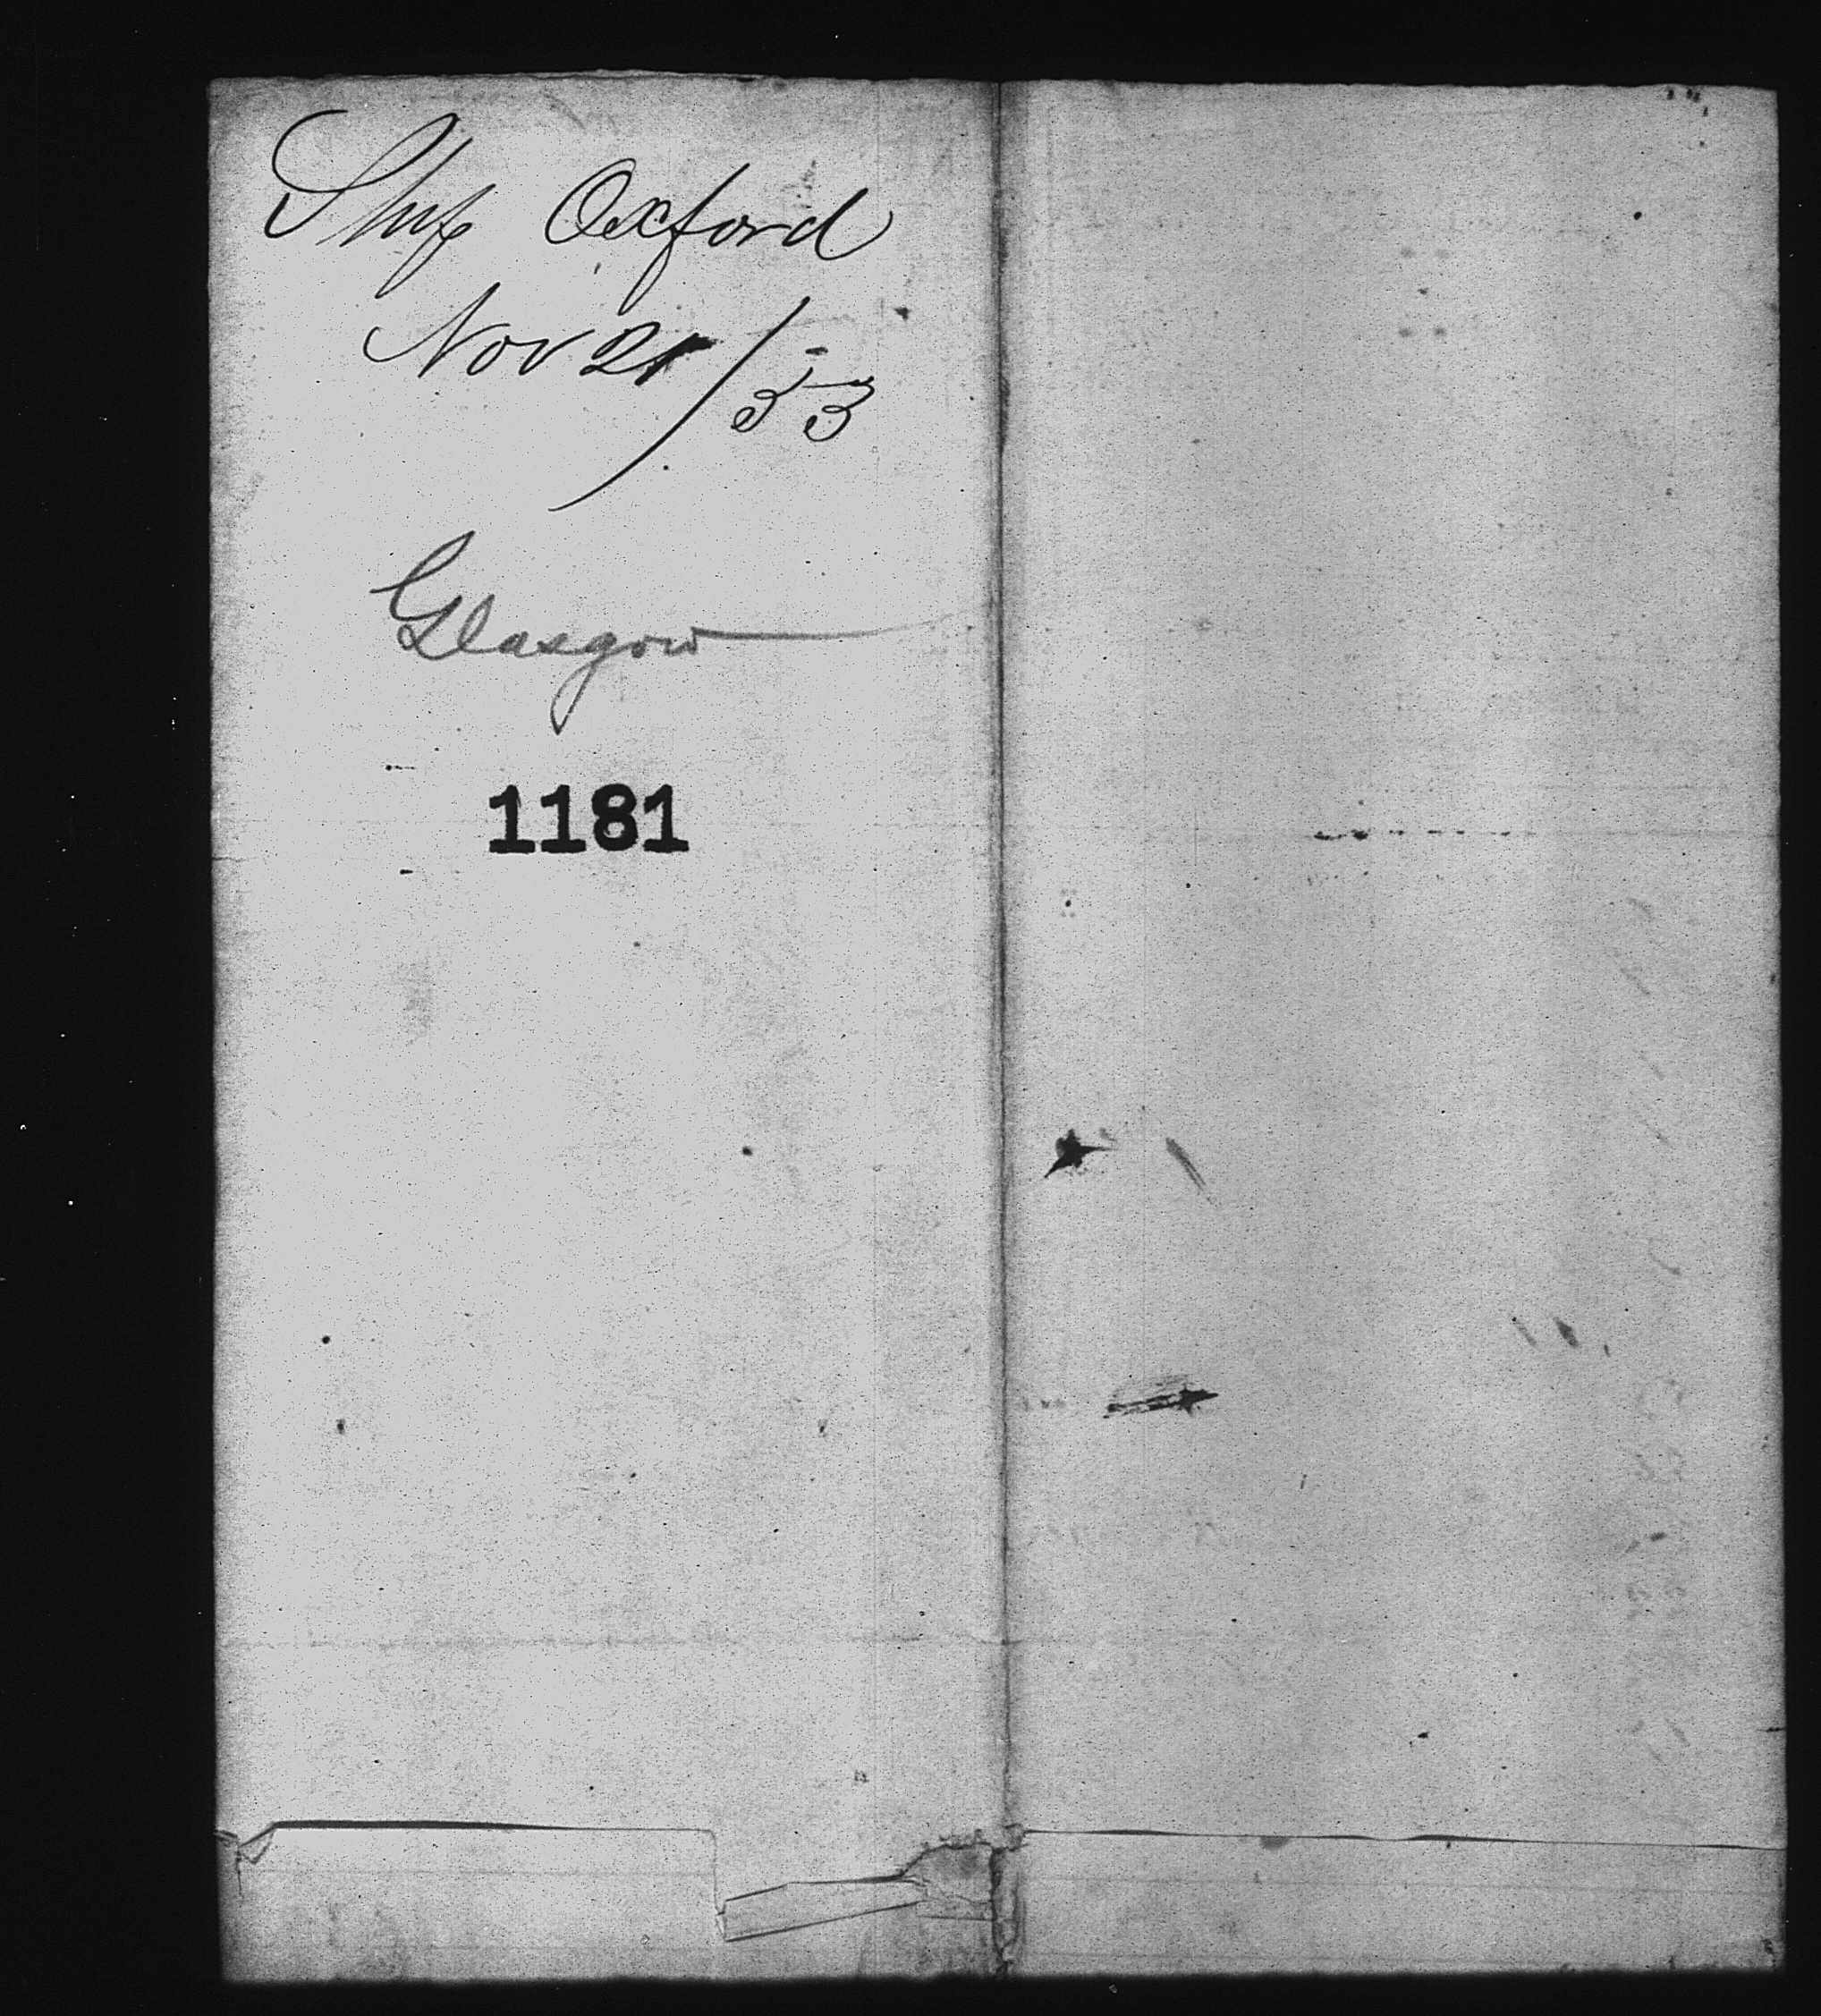 Ship Oxford
Nov 21/53
Glasgow
1181